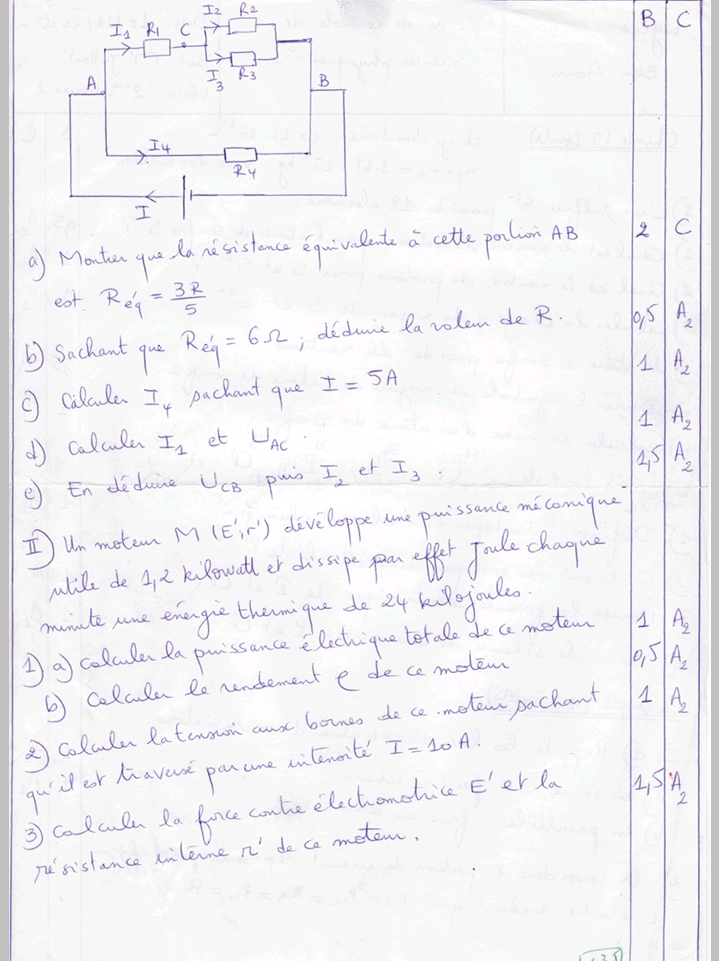 B C
I1 R1 C I2 R2
I3 R3
A B
I4 R4
I
a) Montrer que la résistance équivalente à cette portion AB 2 C
est Réq = 3R/5
b) Sachant que Réq = 6Ω ; déduire la valeur de R. 0,5 A2
c) Calculer I4 sachant que I = 5A 1 A2
d) Calculer I1 et UAC. 1 A2
e) En déduire UCB puis I2 et I3. 1,5 A2
II) Un moteur M (E',r') développe une puissance mécanique
utile de 1,2 kilowatt et dissipe par effet Joule chaque
minute une énergie thermique de 24 kilojoules.
1) a) Calculer la puissance électrique totale de ce moteur 1 A2
b) Calculer le rendement ρ de ce moteur 0,5 A2
2) Calculer la tension aux bornes de ce moteur sachant 1 A2
qu'il est traversé par une intensité I = 10 A.
3) Calculer la force contre électromotrice E' et la 1,5 A2
résistance interne r' de ce moteur.